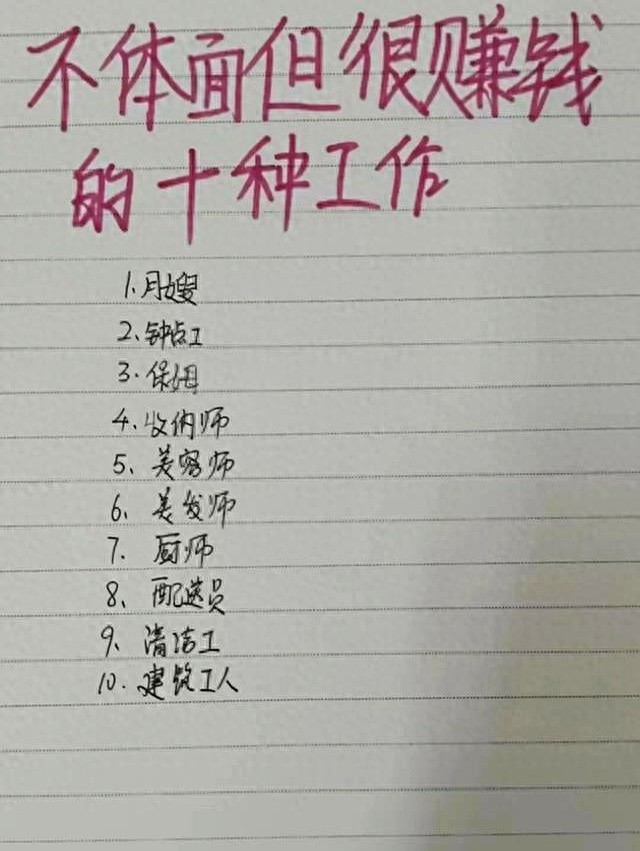 不体面但很赚钱
的十种工作
1.月嫂
2、钟点工
3.保姆
4、收纳师
5、美容师
6、美发师
7.厨师
8、配送员
9、清洁工
10.建筑工人